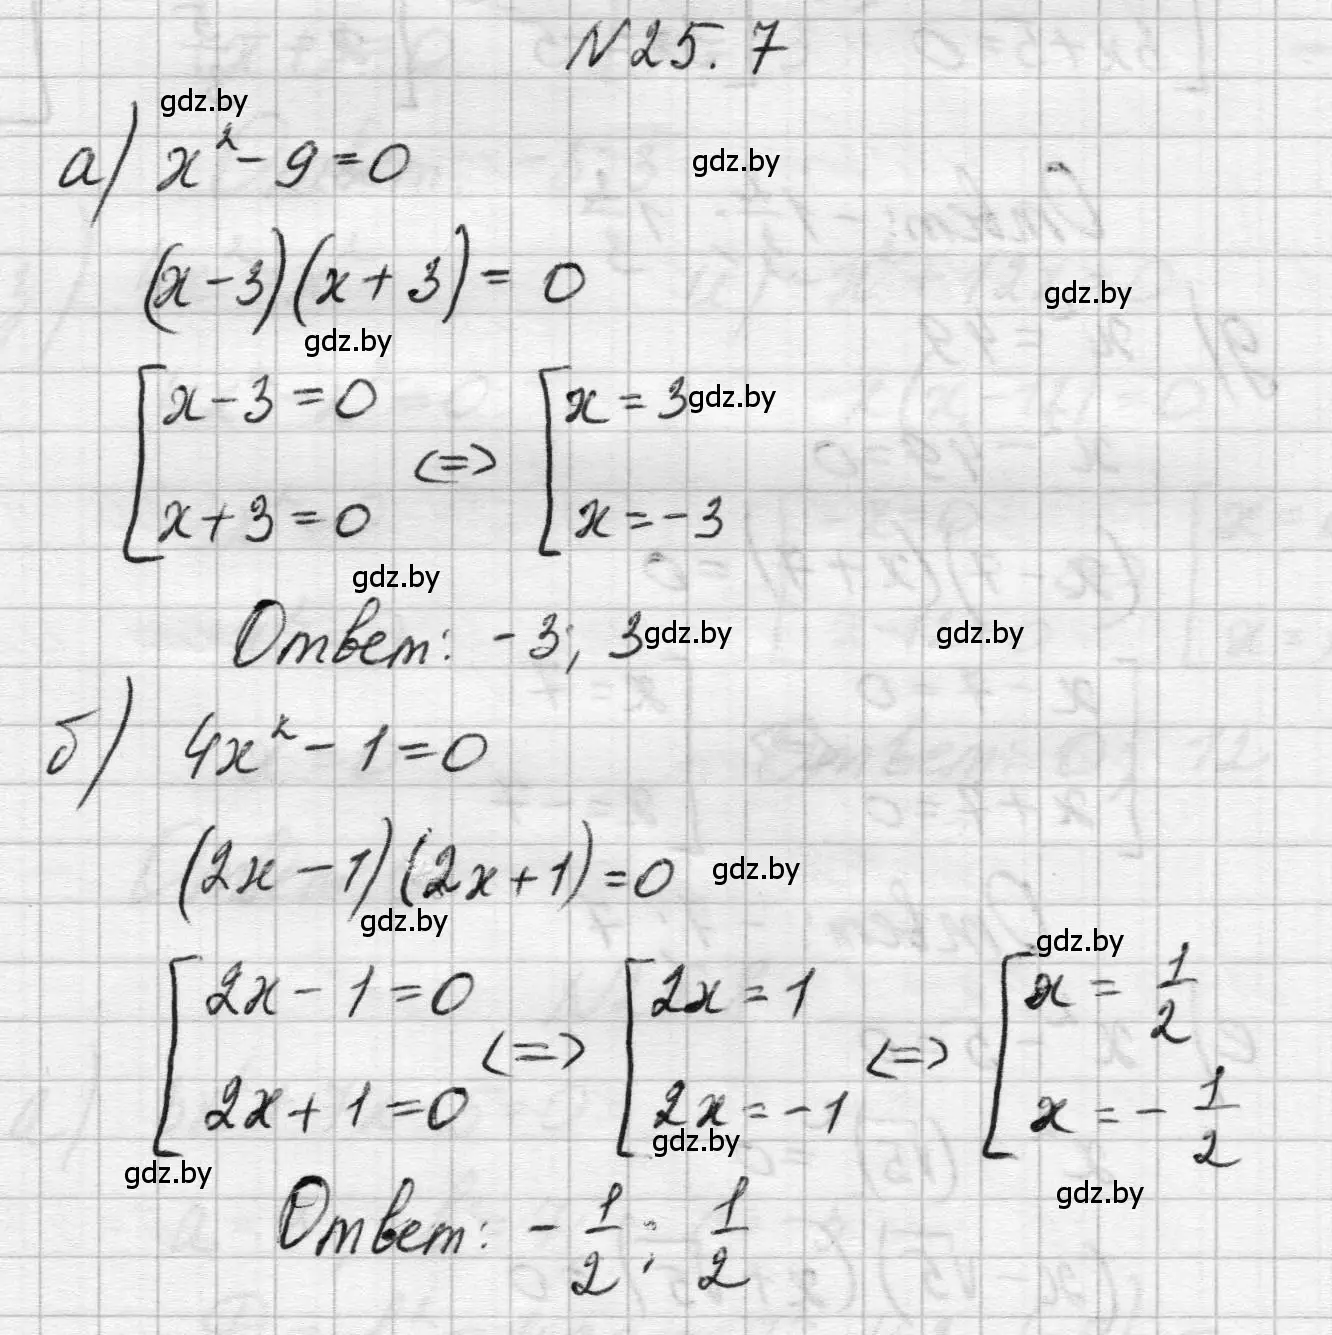 N 25.7
gdz.by
а) x² - 9 = 0
gdz.by
(x - 3)(x + 3) = 0
gdz.by
gdz.by
[ x - 3 = 0 <=> [ x = 3
gdz.by
x + 3 = 0 x = -3
gdz.by
Ответ: -3; 3
gdz.by
gdz.by
б) 4x² - 1 = 0
(2x - 1)(2x + 1) = 0
gdz.by
gdz.by
gdz.by
[ 2x - 1 = 0 <=> [ 2x = 1 <=> [ x = 1/2
2x + 1 = 0 2x = -1 x = - 1/2
gdz.by
gdz.by
gdz.by
Ответ: - 1/2; 1/2